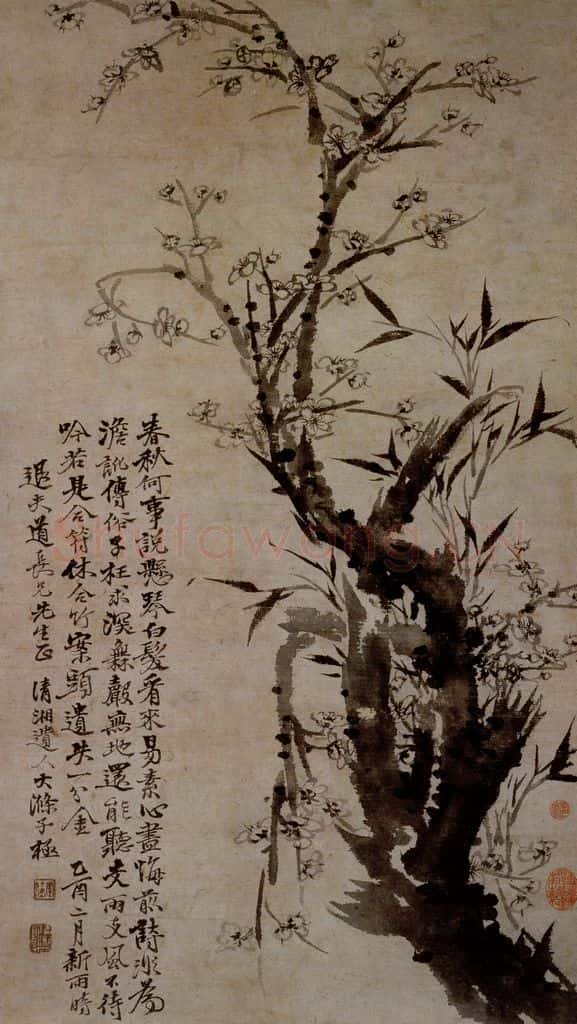 春秋何事說懸琴白髮看來易素心盡悔前詩非為
澹訛傳俗子枉求深橆聲無地還能聽支雨支風不待
吟若是合符休合竹案頭遺失一分金 乙酉二月新雨時
退夫道長兄先生正 清湘遺人大滌子極
Shufawang.CN